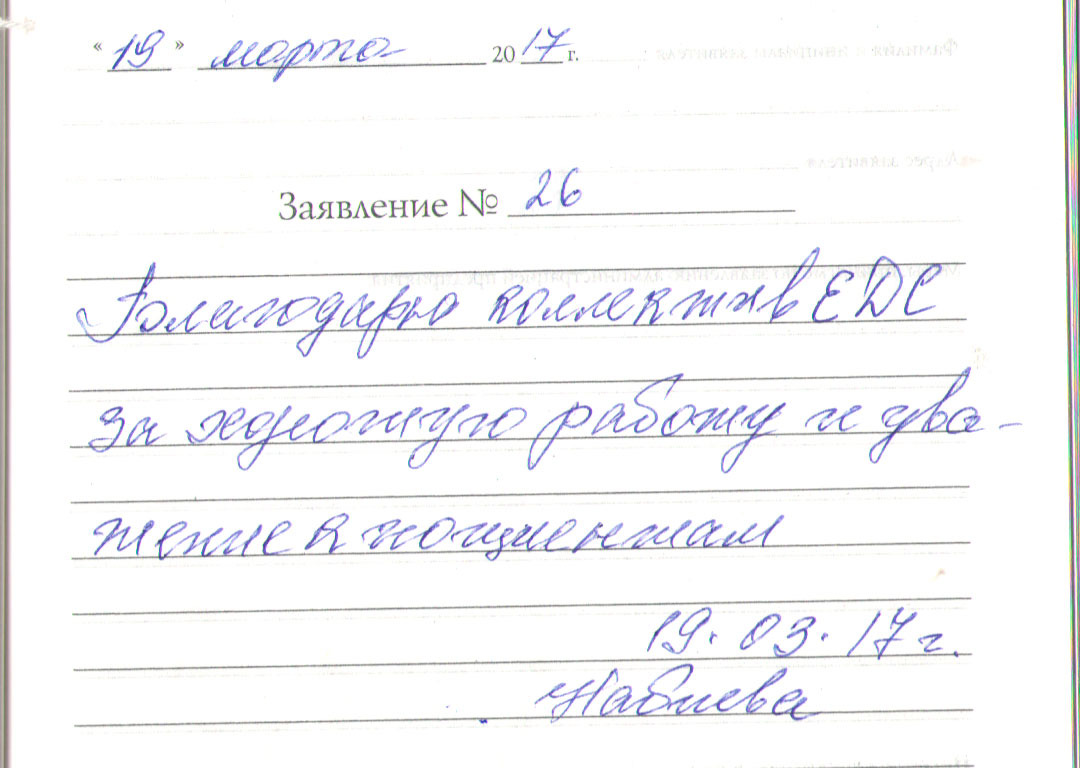 « 19 » марта 2017 г.
Заявление № 26
Благодарю коллектив ЕДС
за хорошую работу и ува-
жение к пациентам
19.03.17 г.
Набиева